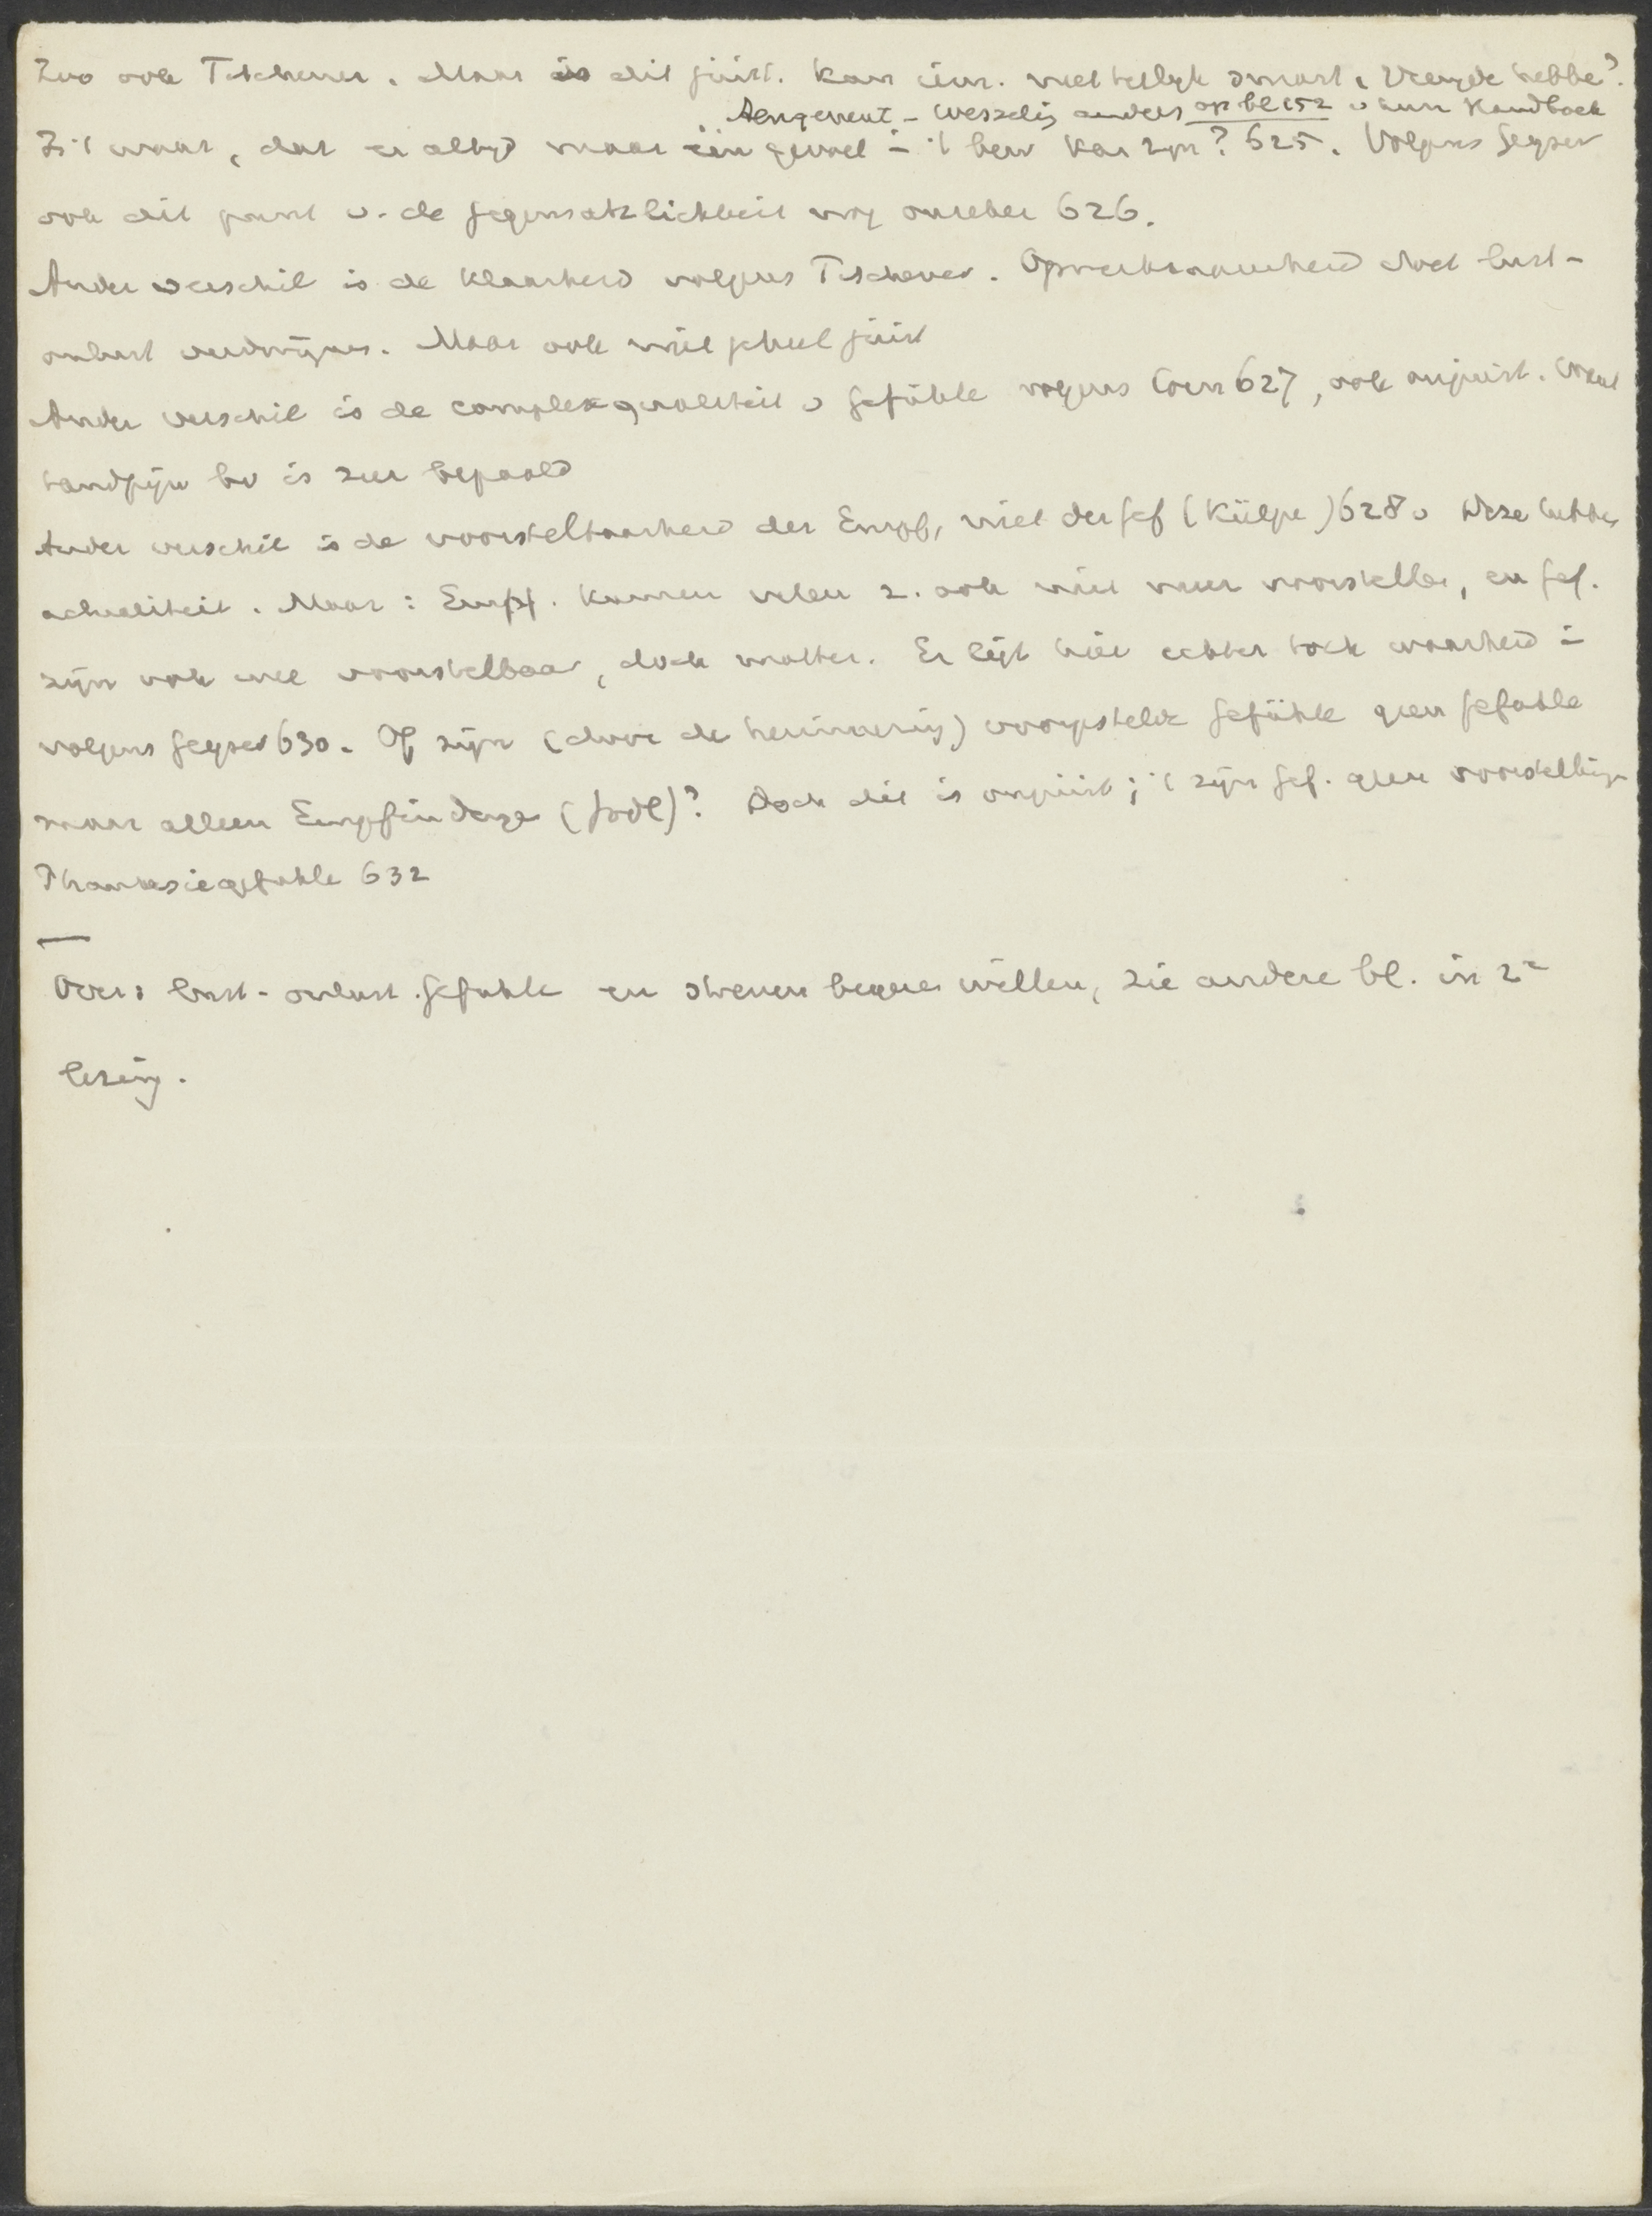 Zoo ook Titchener. Maar is dit juist. Kan iem. niet tegelijk smart & vreugde hebben?
Aengenent - Wesseling anders op bl 152 v hun Handboek
Is 't waar, dat er altijd maar één gevoel in 't bew kan zijn? 625. Volgens Geyser
ook dit punt v. de Gegensätzlichkeit nog onzeker 626.
Ander verschil is de klaarheid volgens Titchener. Opmerkzaamheid doet lust-
onlust verdwijnen. Maar ook niet geheel juist
Ander verschil is de complexqualiteit v Gefühle volgens 627, ook onjuist. Want
tandpijn bv is zeer bepaald
Ander verschil is de voorstelbaarheid der Empf, niet der Gef (Külpe) 628. Deze hebben
actualiteit. Maar: Empf. kunnen velen z. ook niet meer voorstellen, en Gef.
zijn ook wel voorstelbaar, doch matter. Er ligt hier echter toch waarheid in
volgens Geyser 630. Of zijn (door de herinnering) voorgestelde Gefühle geen Gefühle
maar alleen Empfindungen (Jodl)? Doch dit is onjuist; 't zijn Gef. geen voorstellingen
Phantasiegefühle 632
—
Over: lust-onlust Gefühle en streven begeren willen, zie andere bl. in 2e
lezing.